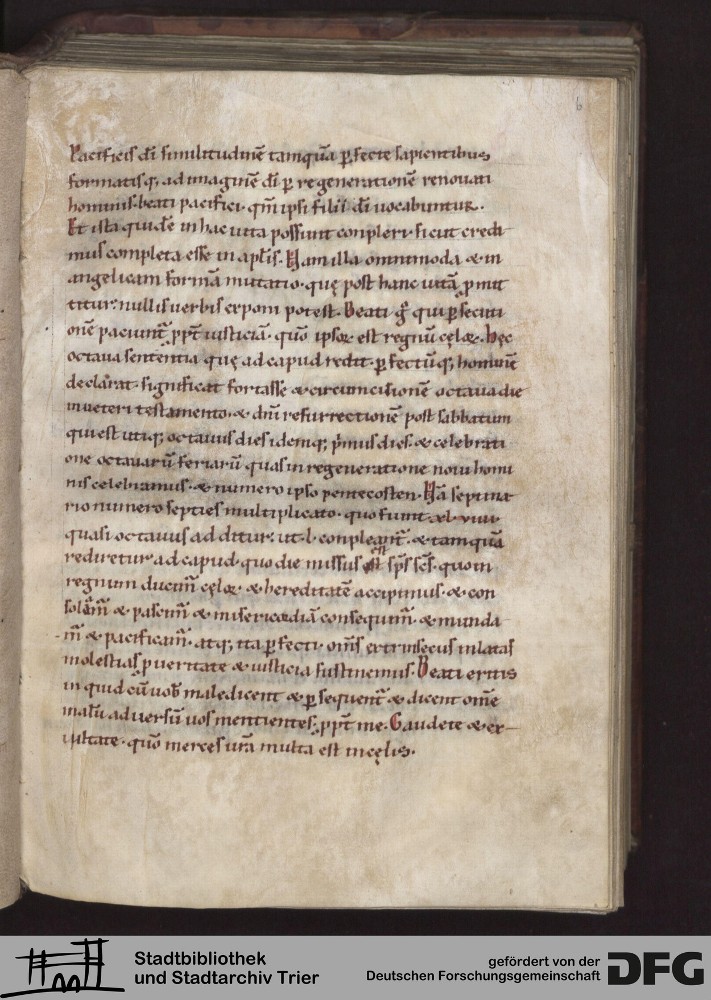 6
Pacificis di similitudinē tamquā pfecte sapientibus
formatisq; ad imaginē di p regenerationē renouati
hominis. beati pacifici qm ipsi filii di uocabuntur.
Et ista quidē in hac uita possunt conpleri. sicut credi
mus completa esse in aplis. Nam illa omnimoda & in
angelicam formā mutatio. quę post hanc uitā pmit
titur. nullis uerbis exponi potest. Beati g qui psecuti
onē paciunt ppt iusticiā. quō ipsoꝝ est regnū cęloꝝ. hęc
octaua sententia quę ad capud redit. pfectūq; hominē
declarat. significat fortasse & circumcisionē octaua die
in ueteri testamento. & dni resurrectionē post sabbatum
qui est utiq; octauus dies idemq; pmus dies. & celebrati
one octauarū feriarū quas in regeneratione noui homi
nis celebramus. & numero ipso pentecosten. Nā septina
rio numero septies multiplicato. quo fiunt xl. uiiii.
quasi octauus additur. ut l. conpleant. & tamquā
rediretur ad capud. quo die missus est sps scs. quo in
regnum ducim cęloꝝ. & hereditatē accipimus. & con
solam & pascim & misericordiā consequim. & munda
m & pacificam. atq; ita pfecti. oms extrinsecus inlatas
molestias p ueritate & iusticia sustinemus. Beati eritis
inquid cū uob maledicent & psequent & dicent ome
malū aduersū uos mentientes ppt me. Gaudete & ex
ultate. quō merces ura multa est in cęlis.
Stadtbibliothek
und Stadtarchiv Trier
gefördert von der
Deutschen Forschungsgemeinschaft
DFG